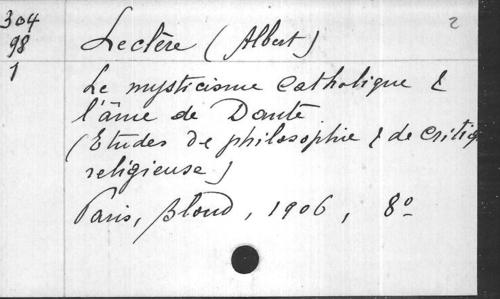 304 Leclère (Albert) 2
98
1 Le mysticisme Catholique &
l'âme de Dante
(Etudes de philosophie & de critiq
religieuse)
Paris, Bloud, 1906, 8º